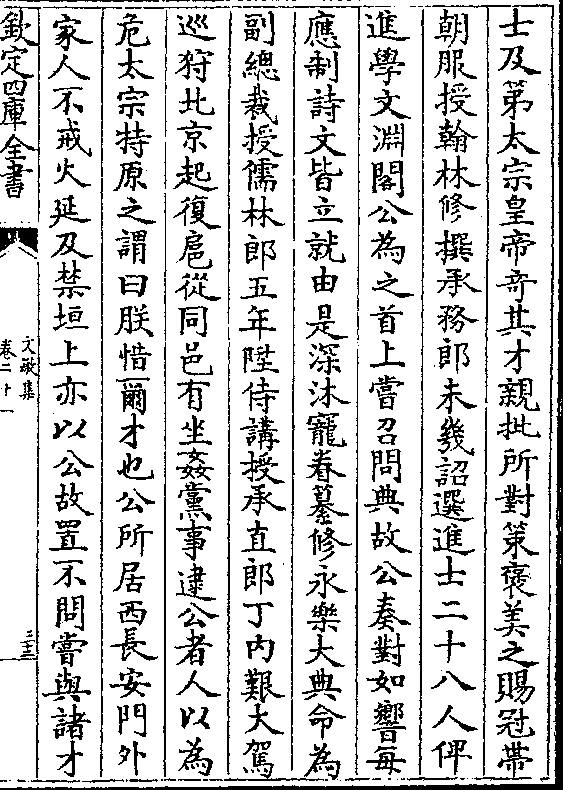 士及第太宗皇帝奇其才親批所對策褒美之賜冠帶
朝服授翰林修撰承務郎未幾詔選進士二十八人俾
進學文淵閣公為之首上嘗召問典故公奏對如響每
應制詩文皆立就由是深沐寵眷纂修永樂大典命為
副總裁授儒林郎五年陞侍講授承直郎丁内艱大駕
巡狩北京起復扈從同邑有坐姦黨事逮公者人以為
危太宗特原之謂曰朕惜爾才也公所居西長安門外
家人不戒火延及禁垣上亦以公故置不問嘗與諸才
欽定四庫全書
文敬集
卷二十一
三十三